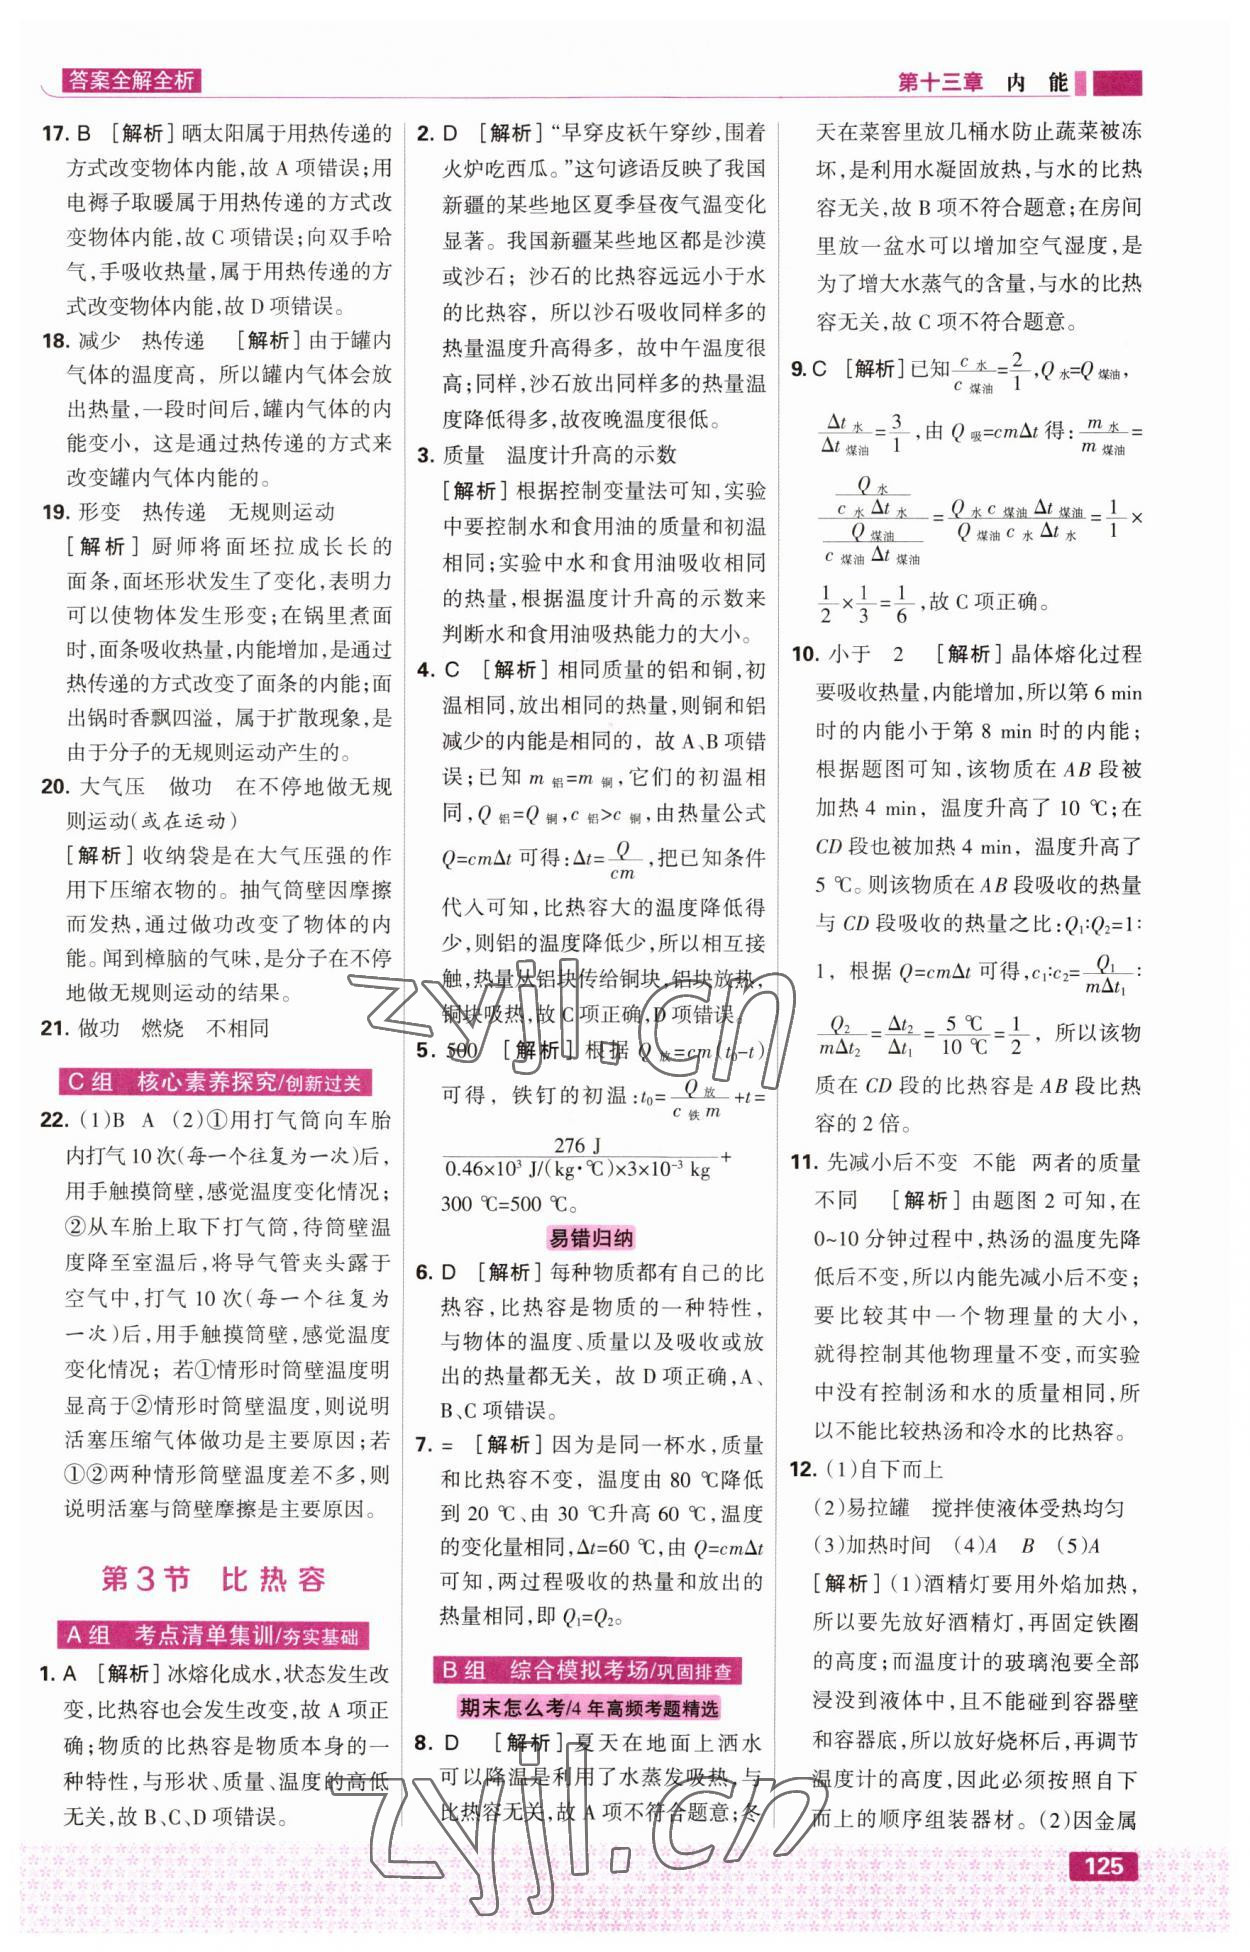 答案全解全析
第十三章 内 能
17. B [解析]晒太阳属于用热传递的
方式改变物体内能,故 A 项错误;用
电褥子取暖属于用热传递的方式改
变物体内能,故 C 项错误;向双手哈
气,手吸收热量,属于用热传递的方
式改变物体内能,故 D 项错误。
18. 减少 热传递 [解析]由于罐内
气体的温度高，所以罐内气体会放
出热量,一段时间后,罐内气体的内
能变小，这是通过热传递的方式来
改变罐内气体内能的。
19. 形变 热传递 无规则运动
[解析]厨师将面坯拉成长长的
面条,面坯形状发生了变化,表明力
可以使物体发生形变;在锅里煮面
时,面条吸收热量,内能增加,是通过
热传递的方式改变了面条的内能;面
出锅时香飘四溢，属于扩散现象,是
由于分子的无规则运动产生的。
20. 大气压 做功 在不停地做无规
则运动(或在运动)
[解析]收纳袋是在大气压强的作
用下压缩衣物的。抽气筒壁因摩擦
而发热,通过做功改变了物体的内
能。闻到樟脑的气味,是分子在不停
地做无规则运动的结果。
21. 做功 燃烧 不相同
C 组 核心素养探究/创新过关
22. (1)B A (2)①用打气筒向车胎
内打气 10 次(每一个往复为一次)后,
用手触摸筒壁,感觉温度变化情况;
②从车胎上取下打气筒,待筒壁温
度降至室温后,将导气管夹头露于
空气中,打气 10 次(每一个往复为
一次)后,用手触摸筒壁,感觉温度
变化情况；若①情形时筒壁温度明
显高于②情形时筒壁温度,则说明
活塞压缩气体做功是主要原因;若
①②两种情形筒壁温度差不多,则
说明活塞与筒壁摩擦是主要原因。
第3节 比热容
A 组 考点清单集训/夯实基础
1. A [解析]冰熔化成水,状态发生改
变,比热容也会发生改变,故 A 项正
确;物质的比热容是物质本身的一
种特性,与形状、质量、温度的高低
无关,故 B、C、D 项错误。
2. D [解析]“早穿皮袄午穿纱,围着
火炉吃西瓜。”这句谚语反映了我国
新疆的某些地区夏季昼夜气温变化
显著。我国新疆某些地区都是沙漠
或沙石；沙石的比热容远远小于水
的比热容，所以沙石吸收同样多的
热量温度升高得多，故中午温度很
高;同样,沙石放出同样多的热量温
度降低得多,故夜晚温度很低。
3. 质量 温度计升高的示数
[解析]根据控制变量法可知,实验
中要控制水和食用油的质量和初温
相同;实验中水和食用油吸收相同
的热量,根据温度计升高的示数来
判断水和食用油吸热能力的大小。
4. C [解析]相同质量的铝和铜,初
温相同,放出相同的热量,则铜和铝
减少的内能是相同的，故 A、B 项错
误;已知 m铝=m铜,它们的初温相
同,Q铝=Q铜,c铝>c铜,由热量公式
Q=cmΔt 可得:Δt=Q/cm,把已知条件
代入可知,比热容大的温度降低得
少,则铝的温度降低少,所以相互接
触,热量从铝块传给铜块,铝块放热,
铜块吸热,故 C 项正确,D 项错误。
5. 500 [解析]根据 Q放=cm(t₀-t)
可得，铁钉的初温:t₀=Q放/c铁m+t=
276 J/0.46×10³ J/(kg·℃)×3×10⁻³ kg+
300 ℃=500 ℃。
易错归纳
6. D [解析]每种物质都有自己的比
热容,比热容是物质的一种特性,
与物体的温度、质量以及吸收或放
出的热量都无关，故 D 项正确,A、
B、C 项错误。
7. = [解析]因为是同一杯水,质量
和比热容不变，温度由 80 ℃降低
到 20 ℃、由 30 ℃升高 60 ℃,温度
的变化量相同,Δt=60 ℃,由 Q=cmΔt
可知,两过程吸收的热量和放出的
热量相同,即 Q₁=Q₂。
B 组 综合模拟考场/巩固排查
期末怎么考/4 年高频考题精选
8. D [解析]夏天在地面上洒水
可以降温是利用了水蒸发吸热,与
比热容无关,故 A 项不符合题意;冬
天在菜窖里放几桶水防止蔬菜被冻
坏,是利用水凝固放热,与水的比热
容无关,故 B 项不符合题意;在房间
里放一盆水可以增加空气湿度,是
为了增大水蒸气的含量,与水的比热
容无关,故 C 项不符合题意。
9. C [解析]已知c水/c煤油=2/1,Q水=Q煤油,
Δt水/Δt煤油=3/1,由 Q吸=cmΔt 得:m水/m煤油=
(Q水/c水Δt水)/(Q煤油/c煤油Δt煤油)=Q水c煤油Δt煤油/Q煤油c水Δt水=1/1×
1/2×1/3=1/6,故 C 项正确。
10. 小于 2 [解析]晶体熔化过程
要吸收热量,内能增加,所以第 6 min
时的内能小于第 8 min 时的内能;
根据题图可知,该物质在 AB 段被
加热 4 min，温度升高了 10 ℃;在
CD 段也被加热 4 min，温度升高了
5 ℃。则该物质在 AB 段吸收的热量
与 CD 段吸收的热量之比:Q₁∶Q₂=1∶
1，根据 Q=cmΔt 可得,c₁∶c₂=Q₁/mΔt₁∶
Q₂/mΔt₂=Δt₂/Δt₁=5 ℃/10 ℃=1/2，所以该物
质在 CD 段的比热容是 AB 段比热
容的 2 倍。
11. 先减小后不变 不能 两者的质量
不同 [解析]由题图 2 可知,在
0~10 分钟过程中,热汤的温度先降
低后不变,所以内能先减小后不变;
要比较其中一个物理量的大小,
就得控制其他物理量不变,而实验
中没有控制汤和水的质量相同,所
以不能比较热汤和冷水的比热容。
12. (1)自下而上
(2)易拉罐 搅拌使液体受热均匀
(3)加热时间 (4)A B (5)A
[解析](1)酒精灯要用外焰加热,
所以要先放好酒精灯,再固定铁圈
的高度;而温度计的玻璃泡要全部
浸没到液体中,且不能碰到容器壁
和容器底,所以放好烧杯后,再调节
温度计的高度,因此必须按照自下
而上的顺序组装器材。(2)因金属
125
zyjl.cn
zyjl.cn